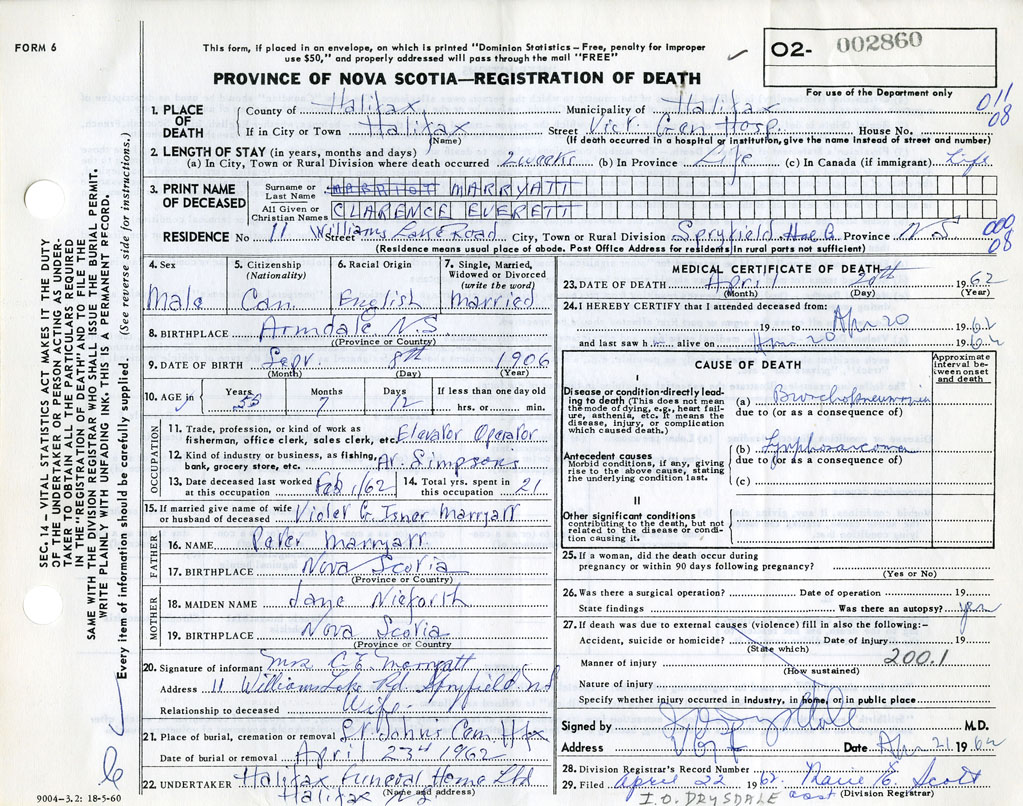 FORM 6
This form, if placed in an envelope, on which is printed "Dominion Statistics – Free, penalty for improper
use $50," and properly addressed will pass through the mail "FREE"
O2- 002860
PROVINCE OF NOVA SCOTIA—REGISTRATION OF DEATH
For use of the Department only
011
08
1. PLACE OF DEATH
County of Halifax Municipality of Halifax
If in City or Town Halifax Street Vict. Gen Hosp. House No.
(Name) (If death occurred in a hospital or institution, give the name instead of street and number)
2. LENGTH OF STAY (in years, months and days)
(a) In City, Town or Rural Division where death occurred 2 weeks (b) In Province Life (c) In Canada (if immigrant) Life
3. PRINT NAME OF DECEASED
Surname or Last Name MARRYATT
All Given or Christian Names CLARENCE EVERETT
RESIDENCE No 11 Street Williams Lake Road City, Town or Rural Division Spryfield Province NS
009
08
(Residence means usual place of abode. Post Office Address for residents in rural parts not sufficient)
4. Sex
Male
5. Citizenship
(Nationality)
Can.
6. Racial Origin
English
7. Single, Married,
Widowed or Divorced
(write the word)
Married
8. BIRTHPLACE Armdale N.S
(Province or Country)
9. DATE OF BIRTH Sept. 8th 1906
(Month) (Day) (Year)
10. AGE in Years 55 Months 7 Days 12 If less than one day old
hrs. or min.
OCCUPATION
11. Trade, profession, or kind of work as
fisherman, office clerk, sales clerk, etc. Elevator Operator
12. Kind of industry or business, as fishing,
bank, grocery store, etc. At Simpsons
13. Date deceased last worked
at this occupation Feb 1/62
14. Total yrs. spent in
this occupation 21
15. If married give name of wife
or husband of deceased Violet G. Isner Marryatt
FATHER
16. NAME Peter Marryatt
17. BIRTHPLACE Nova Scotia
(Province or Country)
MOTHER
18. MAIDEN NAME Jane Nieforth
19. BIRTHPLACE Nova Scotia
(Province or Country)
20. Signature of informant Mrs C. E. Marryatt
Address 11 Williams Lake Rd. Spryfield N.S
Relationship to deceased Wife
21. Place of burial, cremation or removal St Johns Cem Hfx
Date of burial or removal April 23rd 1962
22. UNDERTAKER Halifax Funeral Home Ltd
Halifax N.S
(Name and address)
9004-3.2: 18-5-60
MEDICAL CERTIFICATE OF DEATH
23. DATE OF DEATH April 20th 1962
(Month) (Day) (Year)
24. I HEREBY CERTIFY that I attended deceased from:
19 to Apr 20 1962
and last saw h alive on Apr 20 1962
CAUSE OF DEATH
Approximate
interval between onset
and death
I
Disease or condition directly leading to death (This does not mean
the mode of dying, e.g., heart failure, asthenia, etc. It means the
disease, injury, or complication
which caused death.)
(a) Bronchopneumonia
due to (or as a consequence of)
Antecedent causes
Morbid conditions, if any, giving
rise to the above cause, stating
the underlying condition last.
(b) Lymphosarcoma
due to (or as a consequence of)
(c)
II
Other significant conditions
contributing to the death, but not
related to the disease or condition causing it.
25. If a woman, did the death occur during
pregnancy or within 90 days following pregnancy?
(Yes or No)
26. Was there a surgical operation? Date of operation 19
State findings Was there an autopsy? yes
27. If death was due to external causes (violence) fill in also the following:-
Accident, suicide or homicide? Date of injury 19
(State which)
200.1
Manner of injury
(How sustained)
Nature of injury
Specify whether injury occurred in industry, in home, or in public place
Signed by M.D.
Address V G H Date Apr 21 1962
28. Division Registrar's Record Number
29. Filed April 22 1962 Marie E. Scott
(Division Registrar)
I. O. DRYSDALE
SEC. 14 – VITAL STATISTICS ACT MAKES IT THE DUTY
OF THE UNDERTAKER OR PERSON ACTING AS UNDERTAKER TO OBTAIN ALL THE PARTICULARS REQUIRED
IN THE "REGISTRATION OF DEATH" AND TO FILE THE
SAME WITH THE DIVISION REGISTRAR WHO SHALL ISSUE THE BURIAL PERMIT.
WRITE PLAINLY WITH UNFADING INK. THIS IS A PERMANENT RECORD.
Every item of information should be carefully supplied. (See reverse side for instructions.)